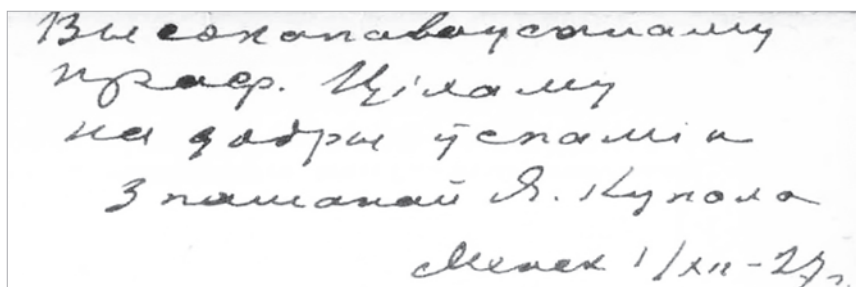 Высокапаважанаму
праф. Ціламу
на добры ўспамін
З пашанай Я. Купала
Менск 1/XII-27 г.